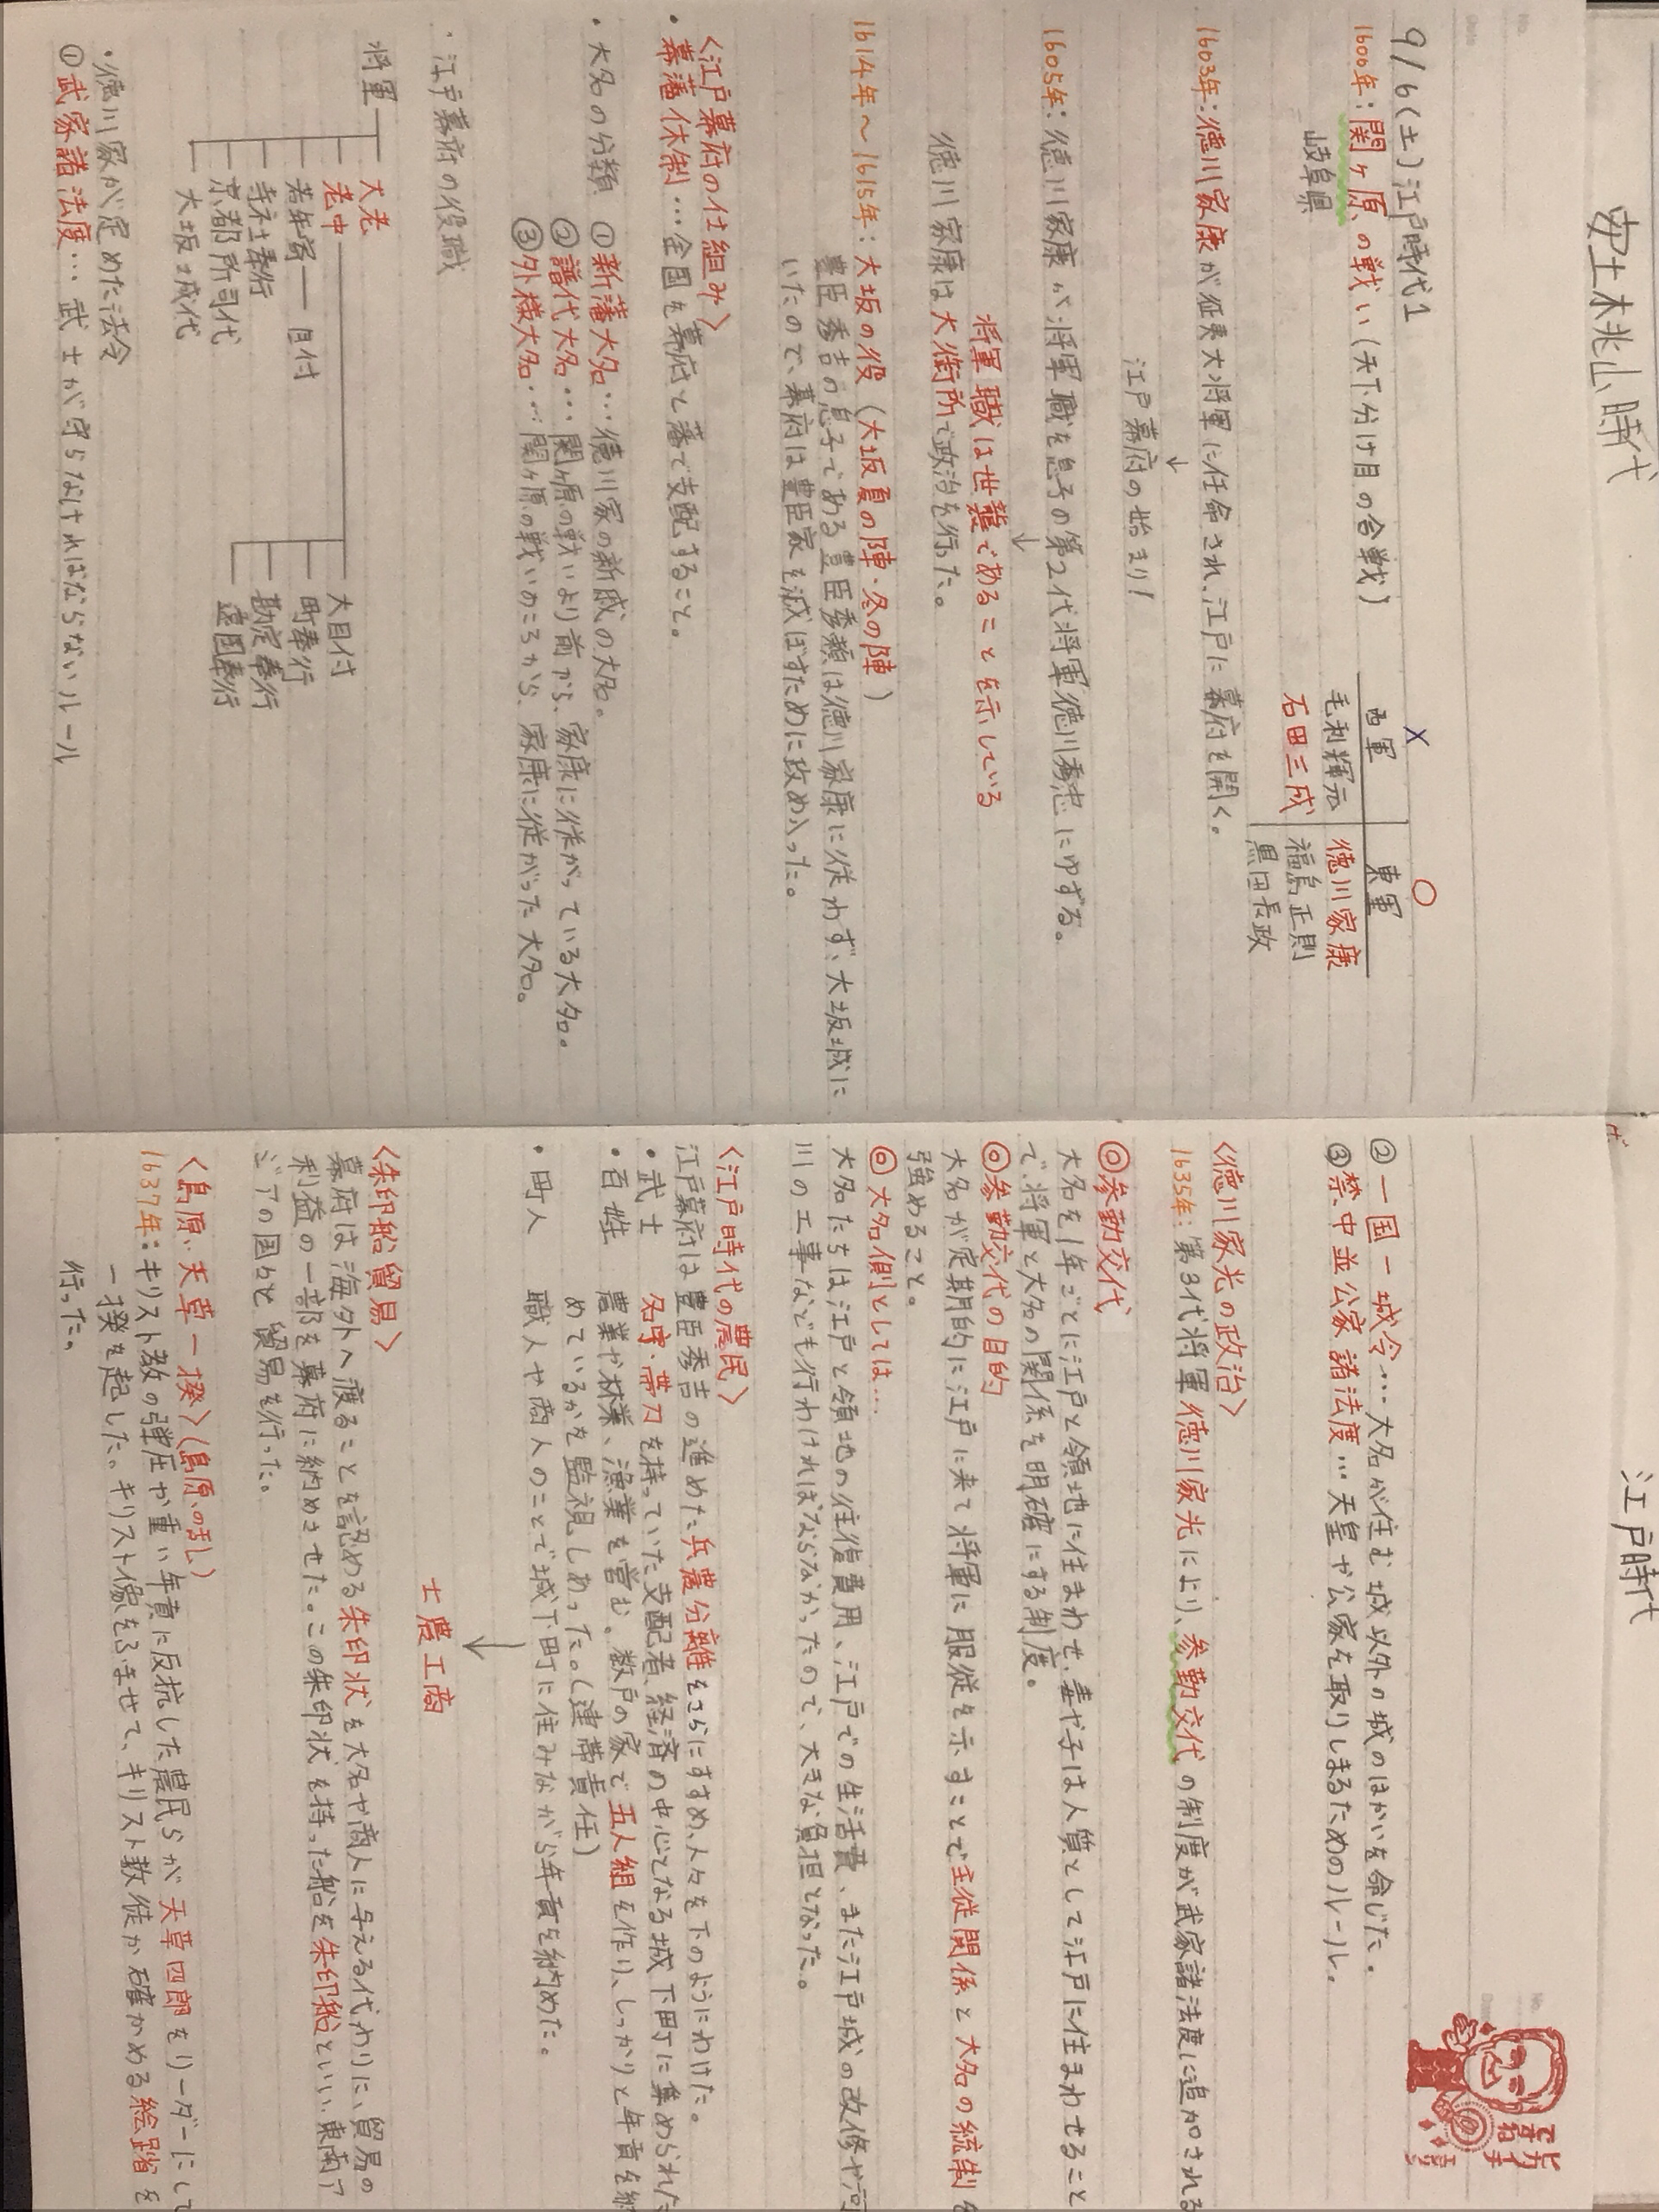 安土桃山時代
9/6(土)江戸時代1
1600年:関ヶ原の戦い(天下分け目の合戦)
岐阜県
× ○
西軍 東軍
毛利輝元 徳川家康
石田三成 福島正則
黒田長政
1603年:徳川家康が征夷大将軍に任命され、江戸に幕府を開く。
↓
江戸幕府の始まり!
1605年:徳川家康が将軍職を息子の第2代将軍徳川秀忠にゆずる。
↓
将軍職は世襲であることを示している
徳川家康は大御所で政治を行った。
1614年~1615年:大坂の役(大坂夏の陣・冬の陣)
豊臣秀吉の息子である豊臣秀頼は徳川家康に従わず、大坂城に
いたので、幕府は豊臣家を滅ぼすために攻め入った。
〈江戸幕府の仕組み〉
・幕藩体制…全国を幕府と藩で支配すること。
・大名の分類 ①新藩大名…徳川家の新戚の大名。
②譜代大名…関ヶ原の戦いより前から、家康に従がっている大名。
③外様大名…関ヶ原の戦いのころから、家康に従がった大名。
・江戸幕府の役職
将軍 大老
老中 大目付
若年寄 目付 町奉行
寺社奉行 勘定奉行
京都所司代 遠国奉行
大坂城代
・徳川家が定めた法令
①武家諸法度…武士が守らなければならないルール
江戸時代
②一国一城令…大名が住む城以外の城のはかいを命じた。
③禁中並公家諸法度…天皇や公家を取りしまるためのルール。
〈徳川家光の政治〉
1635年:第3代将軍徳川家光により、参勤交代の制度が武家諸法度に追加される
◎参勤交代
大名を1年ごとに江戸と領地に住まわせ、妻や子は人質として江戸に住まわせること
で、将軍と大名の関係を明確にする制度。
◎参勤交代の目的
大名が定期的に江戸に来て将軍に服従を示すことで主従関係と大名の統制を
強めること。
◎大名側としては…
大名たちは江戸と領地の往復費用、江戸での生活費、また江戸城の改修や河
川の工事なども行わければならなかったので、大きな負担となった。
〈江戸時代の農民〉
江戸幕府は豊臣秀吉の進めた兵農分離をさらにすすめ、人々を下のようにわけた。
・武士 名字・帯刀を持っていた支配者、経済の中心となる城下町に集められた
・百姓 農業や林業、漁業を営む。数戸の家で五人組を作り、しっかりと年貢を納
めているかを監視しあった。(連帯責任)
・町人 職人や商人のことで城下町に住みながら年貢を納めた。
↓
士農工商
〈朱印船貿易〉
幕府は海外へ渡ることを認める朱印状を大名や商人に与える代わりに、貿易の
利益の一部を幕府に納めさせた。この朱印状を持った船を朱印船といい、東南ア
ジアの国々と貿易を行った。
〈島原・天草一揆〉(島原の乱)
1637年:キリスト教の弾圧や重い年貢に反抗した農民らが天草四郎をリーダーにして
一揆を起した。キリスト像をふませて、キリスト教徒か確かめる絵踏を
行った。